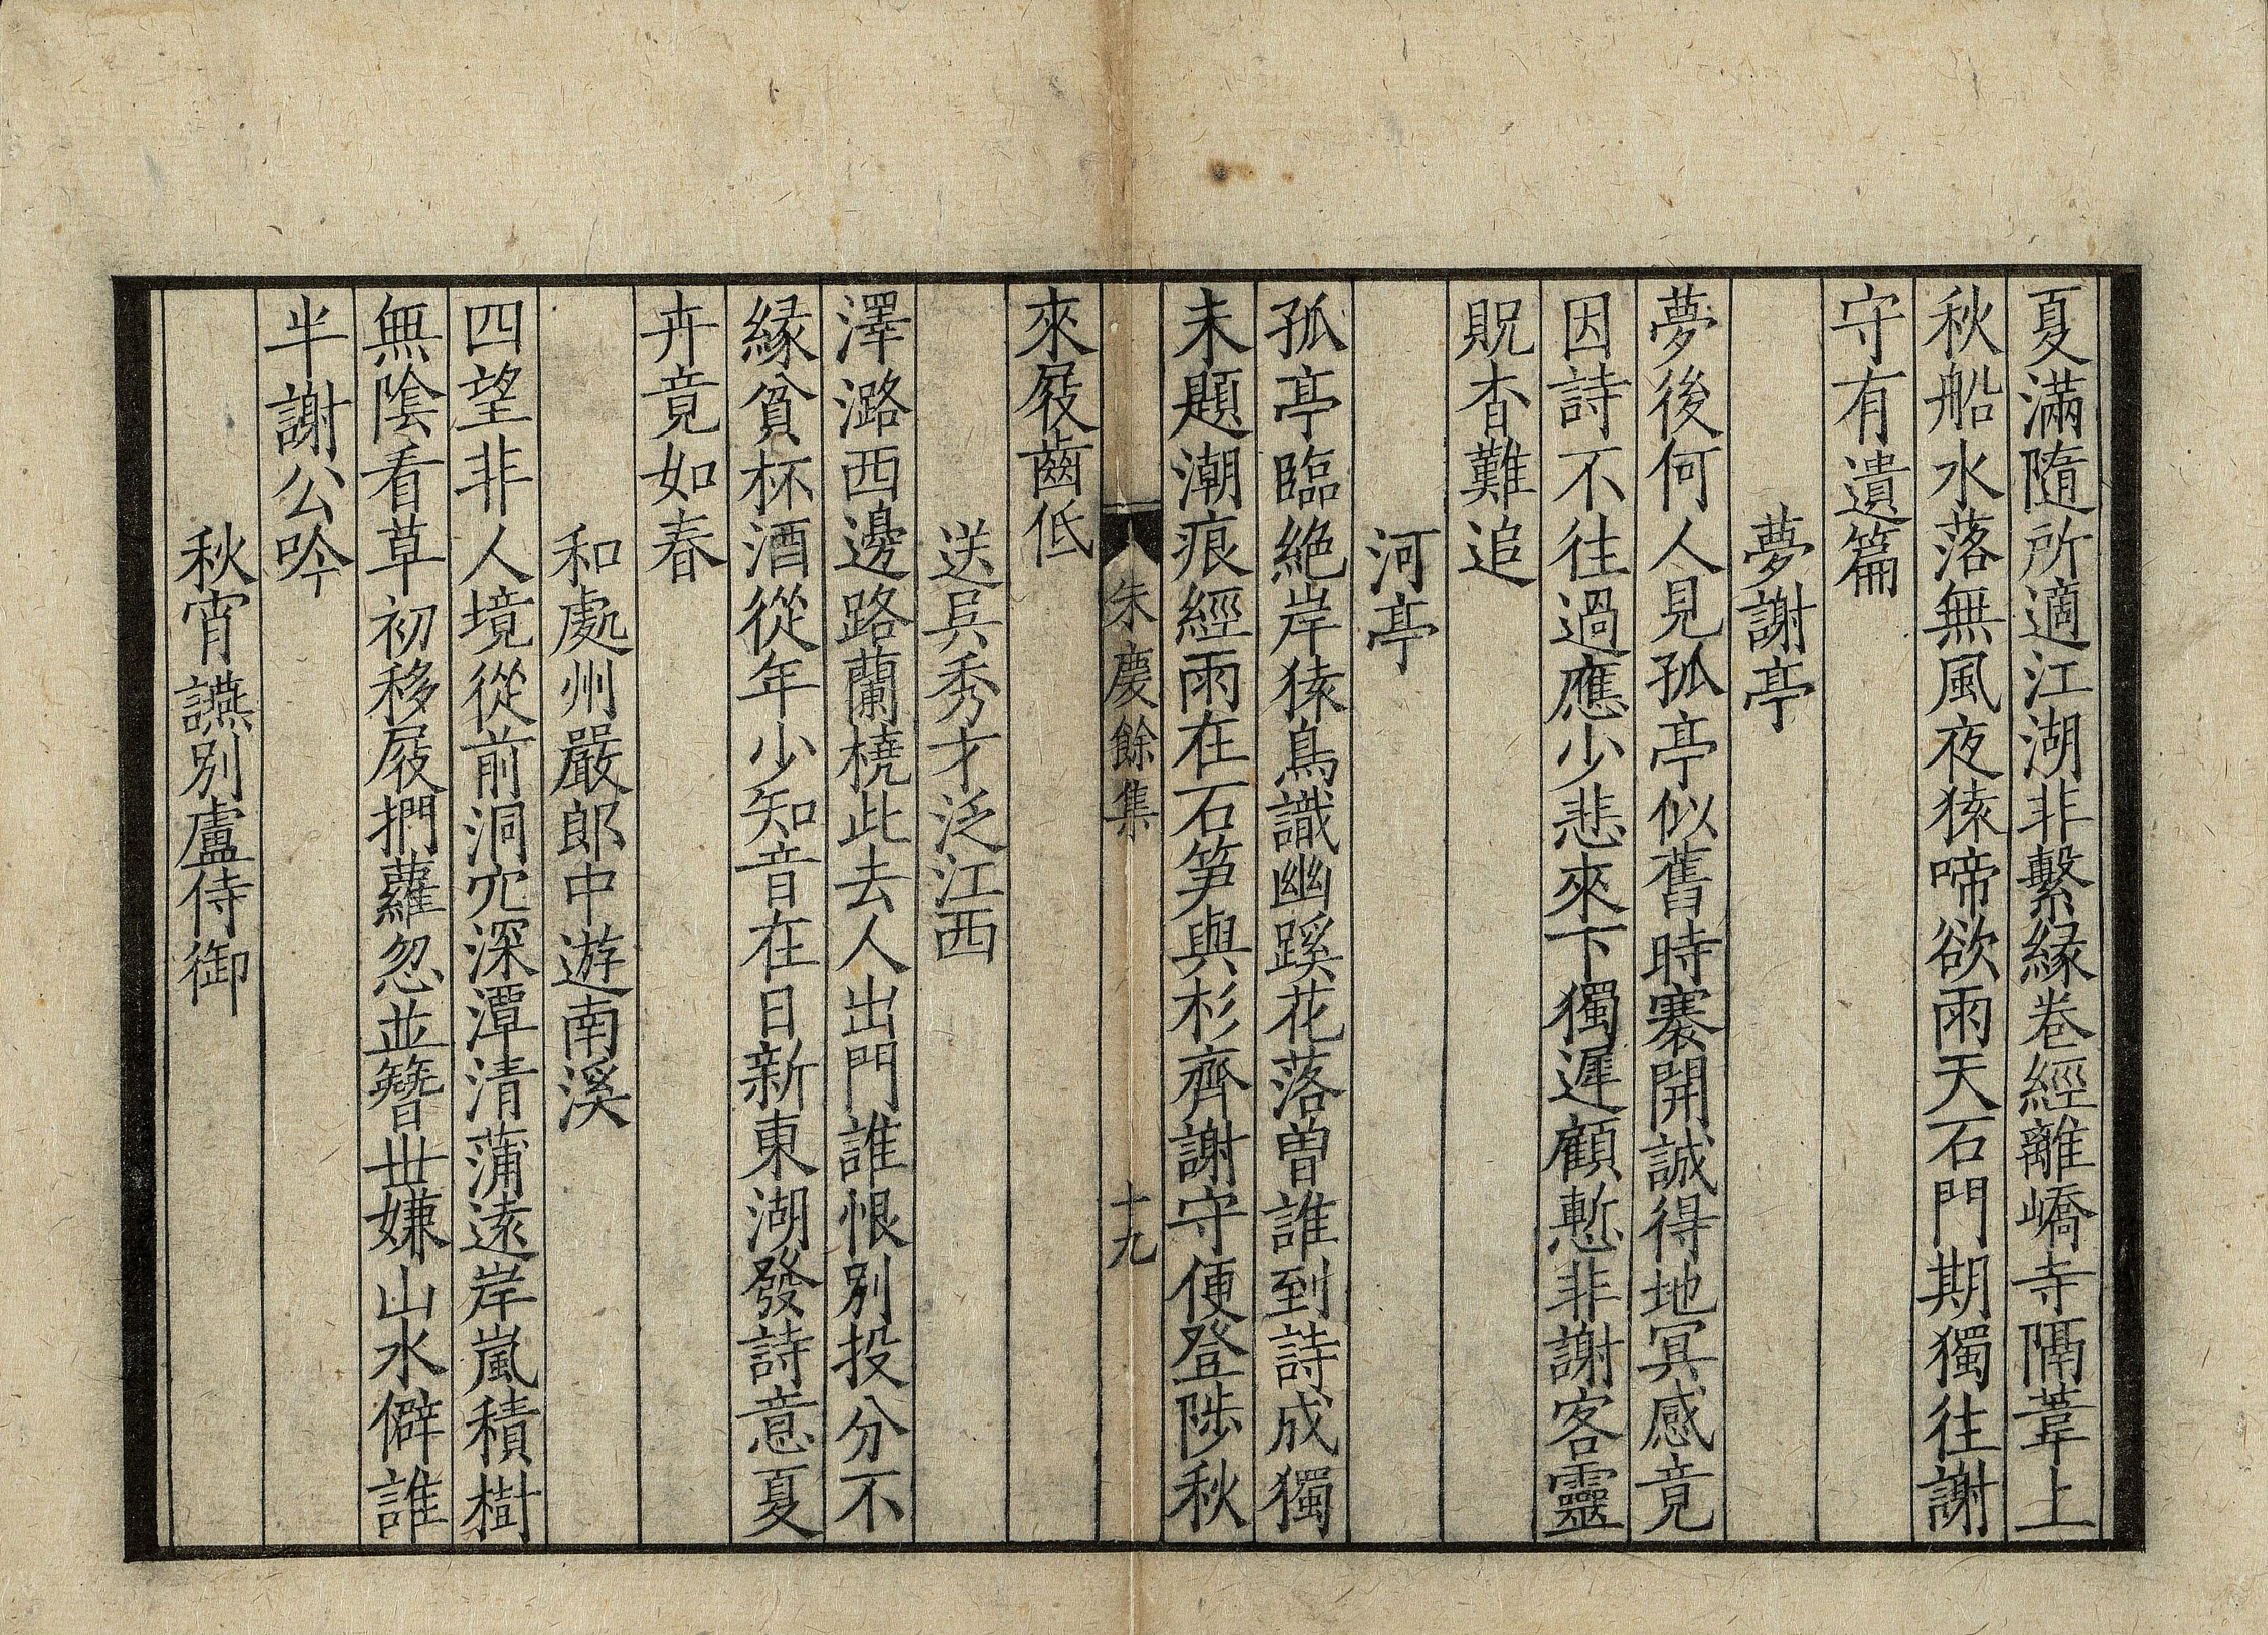 夏滿隨所適江湖非繫緣卷經離嶠寺隔葦上
秋船水落無風夜猿啼欲雨天石門期獨往謝
守有遺篇
夢謝亭
夢後何人見孤亭似舊時褰開誠得地冥感竟
因詩不往過應少悲來下獨遲顧慙非謝客靈
貺杳難追
河亭
孤亭臨絕岸猿鳥識幽蹊花落曽誰到詩成獨
未題潮痕經雨在石笋與杉齊謝守便登陟秋
朱慶餘集
十九
來屐齒低
送吳秀才泛江西
澤潞西邊路蘭橈此去人出門誰恨別投分不
緣貧杯酒從年少知音在日新東湖發詩意夏
卉竟如春
和處州嚴郎中遊南溪
四望非人境從前洞穴深潭清蒲遠岸嵐積樹
無陰看草初移屐捫蘿忽並簪世嫌山水僻誰
半謝公吟
秋宵讌別盧侍御